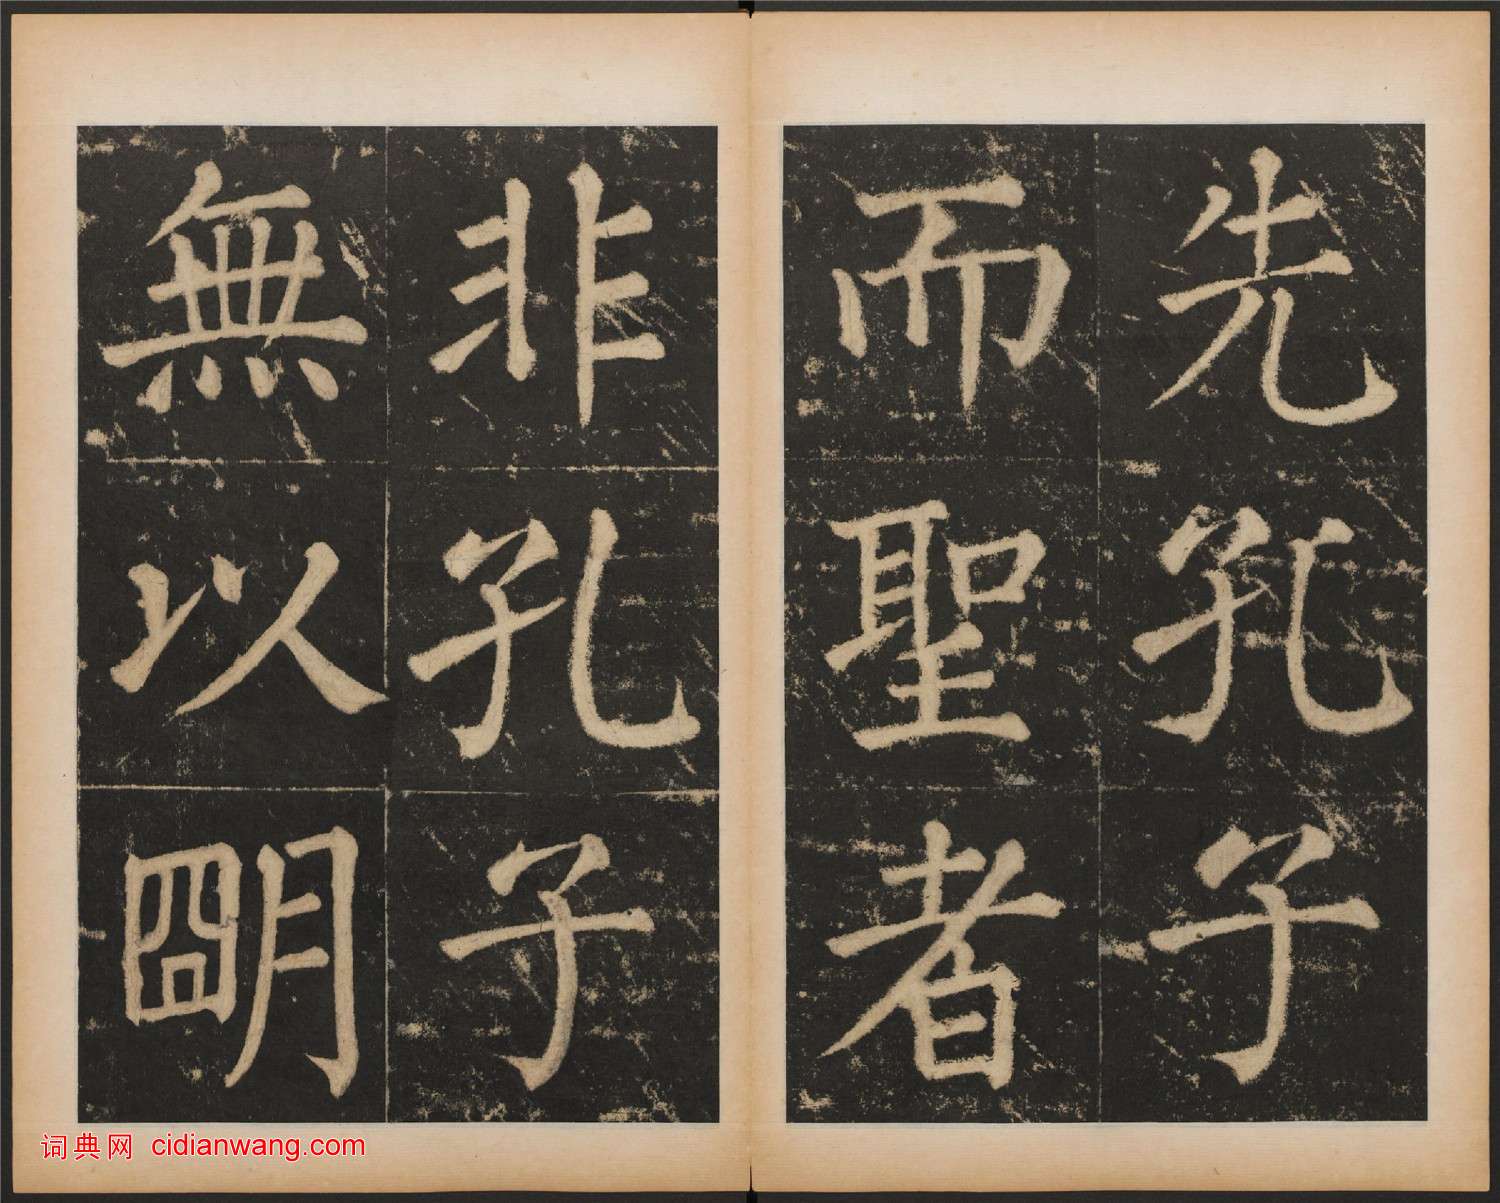 先孔子
而聖者
非孔子
無以朙
词典网 cidianwang.com